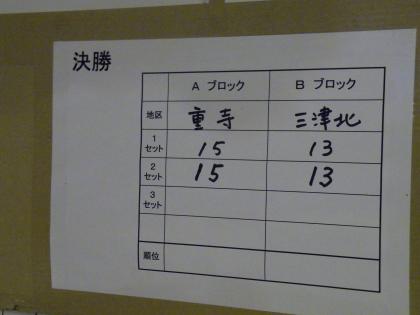 決勝
A ブロック B ブロック
地区 重寺 三津北
1セット 15 13
2セット 15 13
3セット
順位